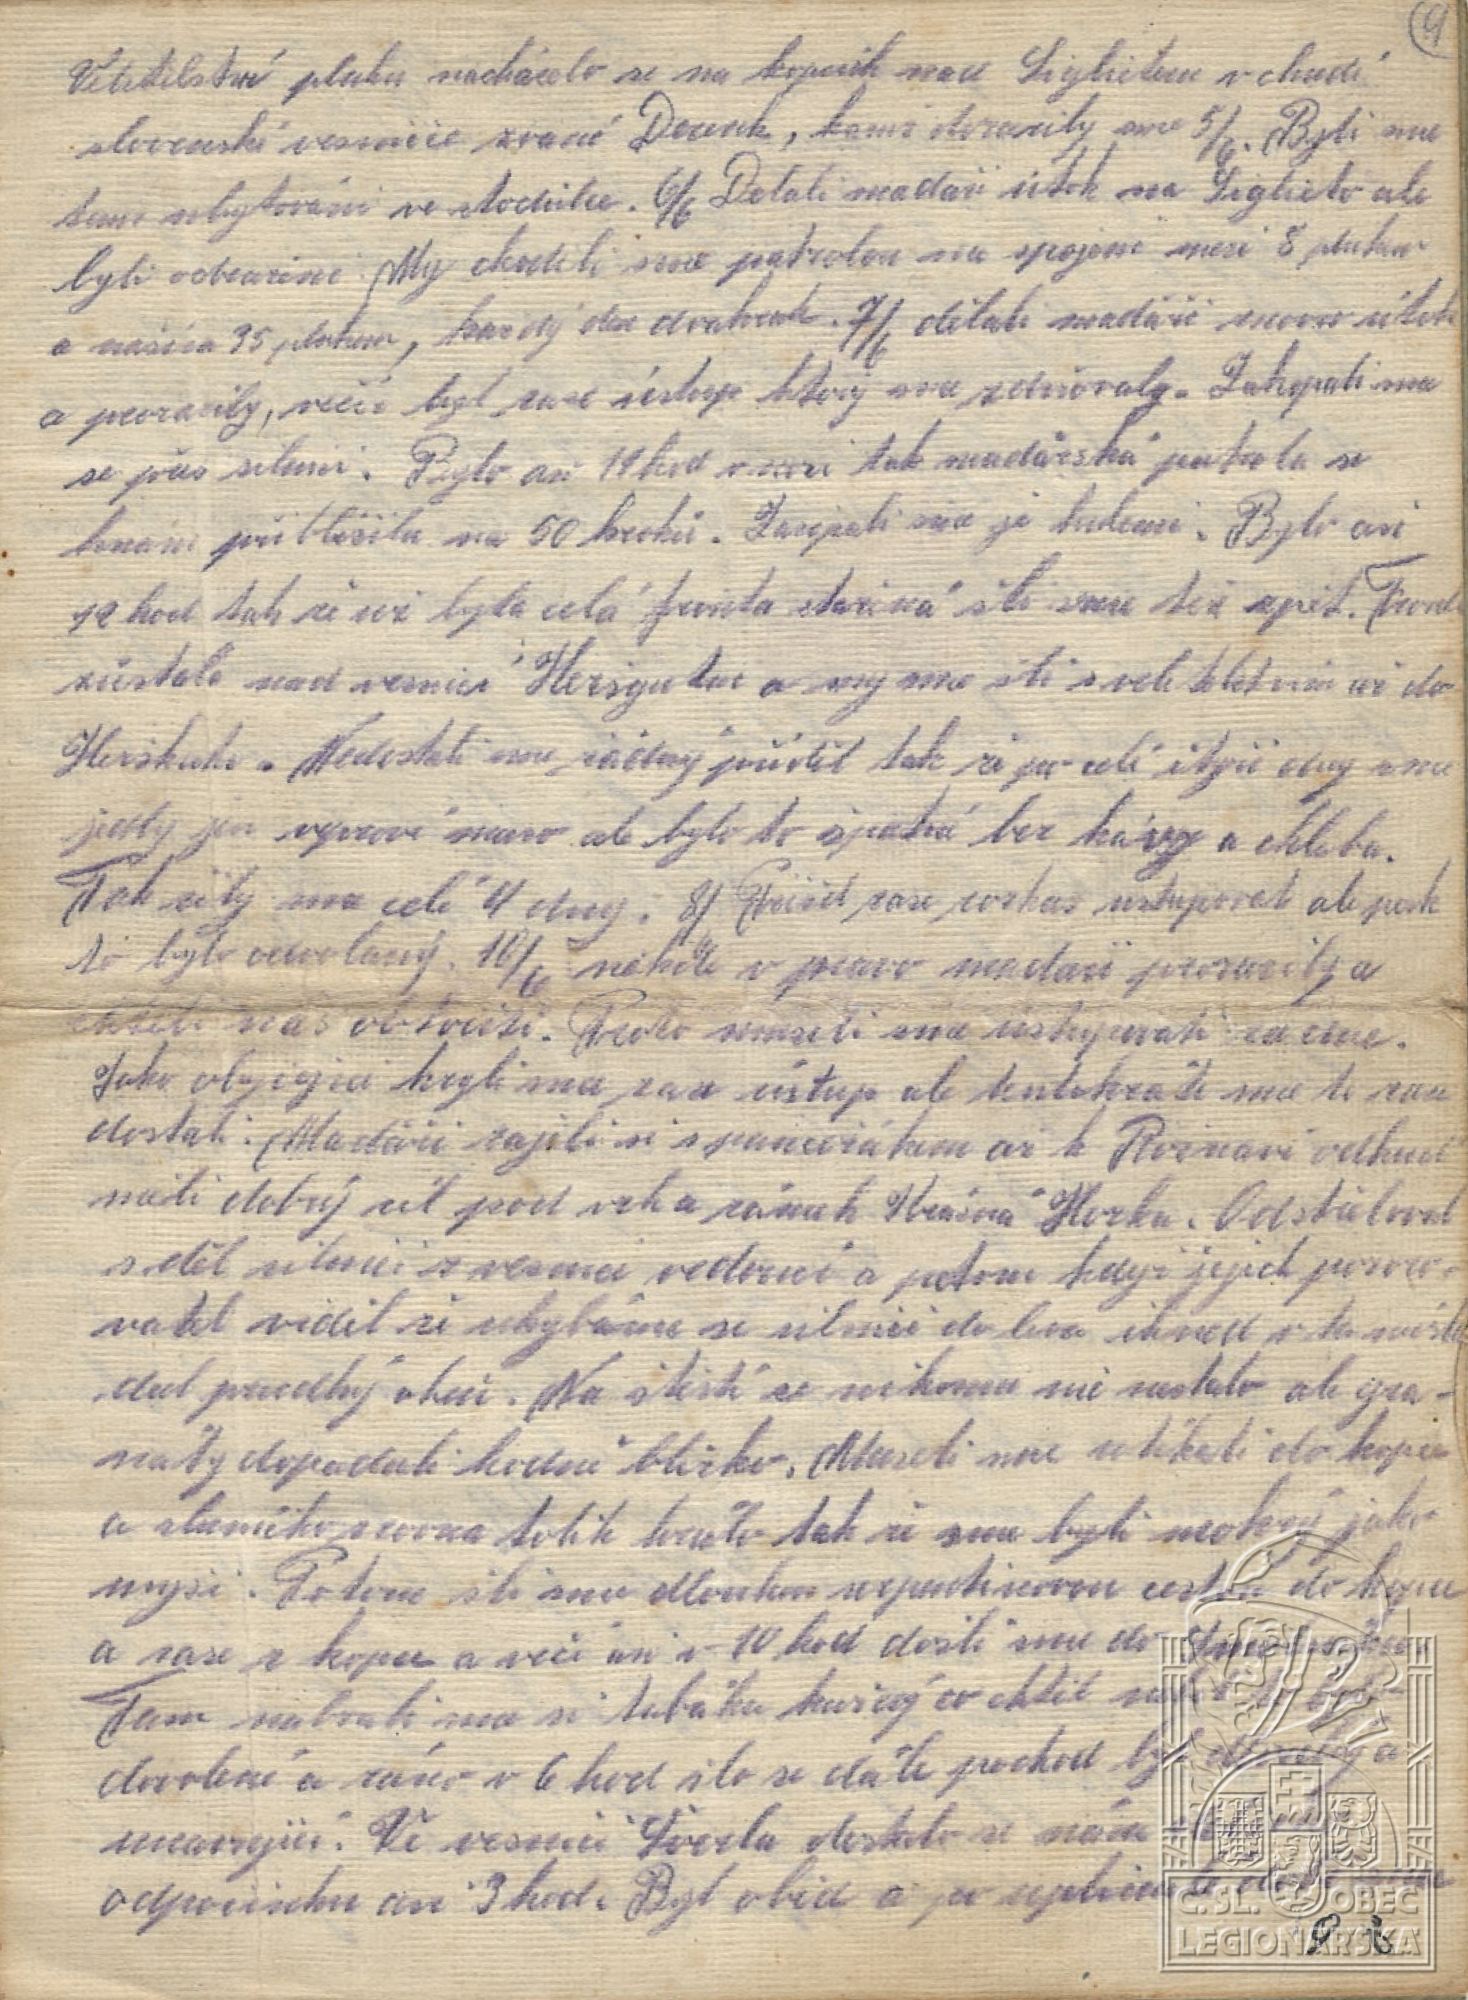 9
Velitelství pluku nacházelo se na kopcích nad Siglietem v chudé
slovenské vesničce zvané Derenk, kamž dorazily sme 5/6. Byli sme
tam ubytováni ve stodůlce. 6/6 Dělali maďaři útok na Siglieto ale
byli odraženi. My chodili sme patrolou na spojení mezi 8 plukem
a našim 35 plukem, každý den dvakrát. 7/6 dělali maďáři znovu útok
a prorazily, večír byl zase ústup ktorý sme zdržovaly. Zakopali sme
se přes silnici. Bylo asi 11 hod v noci tak maďářská patrola se
knam přiblížila na 50 kroků. Zasypali sme je kulemi. Bylo asi
12 hod tak že už byla celá fronta stažená šli sme též zpět. Fronta
zůstala nad vesnicí Heršgutne a my sme šli s velitelstvim až do
Herškute. Nedostali sme žádný příděl tak že po celé čtyři dny sme
jedly jen vepřové maso ale bylo to špatné bez kávy a chleba.
Tak žily sme celé 4 dny. 8/ Přišel zase rozkaz ustupovat ale pak
to bylo odvolaný. 10/6 někde v pravo maďaři prorazily a
chtěli nás obklíčiti. Proto museli sme ustupovati ve dne.
Jako obyčejně kryli sme zase ústup ale tentokráte sme to zase
dostali. Maďáři zajeli si s pancéřákem až k Rožňavě odkud
měli dobrý cíl pod vrh a zámek Krásná Horka. Odstřeloval
s děl silnici z vesnice vedoucí a potom když jejich pozoro-
vatel viděl že uhybáme se silnice do leva ihned v ta místa
dal prudký oheň. Na štěstí se nikomu nic nestalo ale gra-
náty dopadali hodně blízko. Museli sme utíkati do kopce
a sluníčko zrovna tolik hrálo tak že sme byli mokrý jako
myši. Potom šli sme dlouhou serpentinovou cestou do kopce
a zase z kopce a večír asi v 10 hod došli sme do
Tam nabrali sme si tabáku každý co chtěl
dovolené a ráno v 6 hod šlo se dále pochod byl
unavující. Ve vesnici Švedla dostalo se nám
odpočinku asi 3 hod. Byl oběd a po
9 b
Č. SL. OBEC
LEGIONÁŘSKÁ